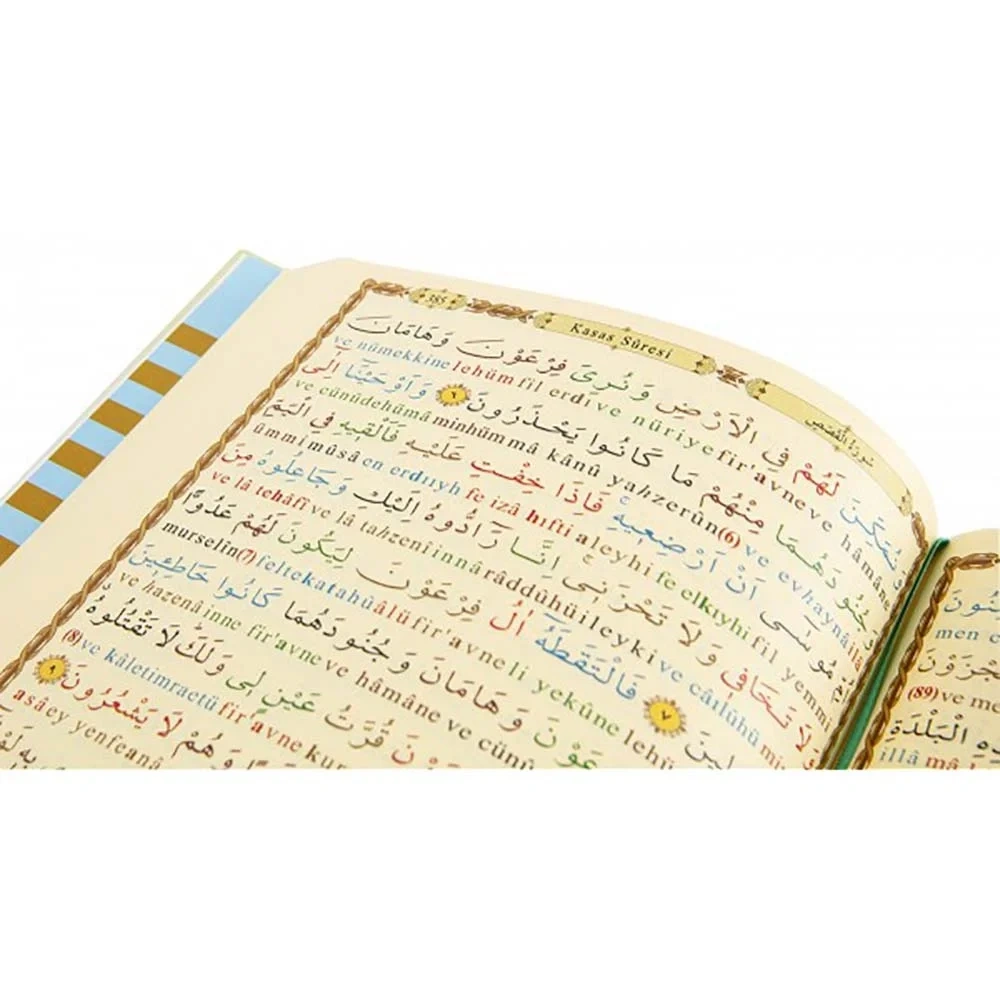 385 Kasas Sûresi سُورَةُ الْقَصَصِ
وَنُمَكِّنَ لَهُمْ فِى الْاَرْضِ وَنُرِىَ فِرْعَوْنَ وَهَامَانَ
ve nümekkine lehüm fil erdi ve nüriye fir'avne ve hâmâne
وَجُنُودَهُمَا مِنْهُمْ مَا كَانُوا يَحْذَرُونَ ٦ وَاَوْحَيْنَٓا اِلٰٓى
ve cünûdehümâ minhüm mâ kânû yahzerûn(6) ve evhaynâ ilâ
اُمِّ مُوسٰٓى اَنْ اَرْضِعِيهِ فَاِذَا خِفْتِ عَلَيْهِ فَاَلْقِيهِ فِى الْيَمِّ
ümmi mûsâ en erdııyh fe izâ hıfti aleyhi fe elkıyhi fil yemmi
وَلَا تَخَافِى وَلَا تَحْزَنِى اِنَّا رَٓادُّوهُ اِلَيْكِ وَجَاعِلُوهُ مِنَ
ve lâ tehâfî ve lâ tahzenî innâ râddûhü ileyki ve câılûhü
٧ فَالْتَقَطَهُٓ اٰلُ فِرْعَوْنَ لِيَكُونَ لَهُمْ عَدُوًّا
murselîn(7) feltekatahû âlü fir'avne li yekûne
وَهَامَانَ وَجُنُودَهُمَا كَانُوا خَاطِئِينَ
ve hazenâ inne fir'avne ve hâmâne ve
قُرَّتُ عَيْنٍ لِى وَلَكَ لَا تَقْتُلُوهُ
(8)ve kâletimraetü fir'avne
وَهُمْ لَا يَشْعُرُونَ ٩
asâ ey yenfeanâ
men
(89) ve
الْبَلْدَةِ
illâ